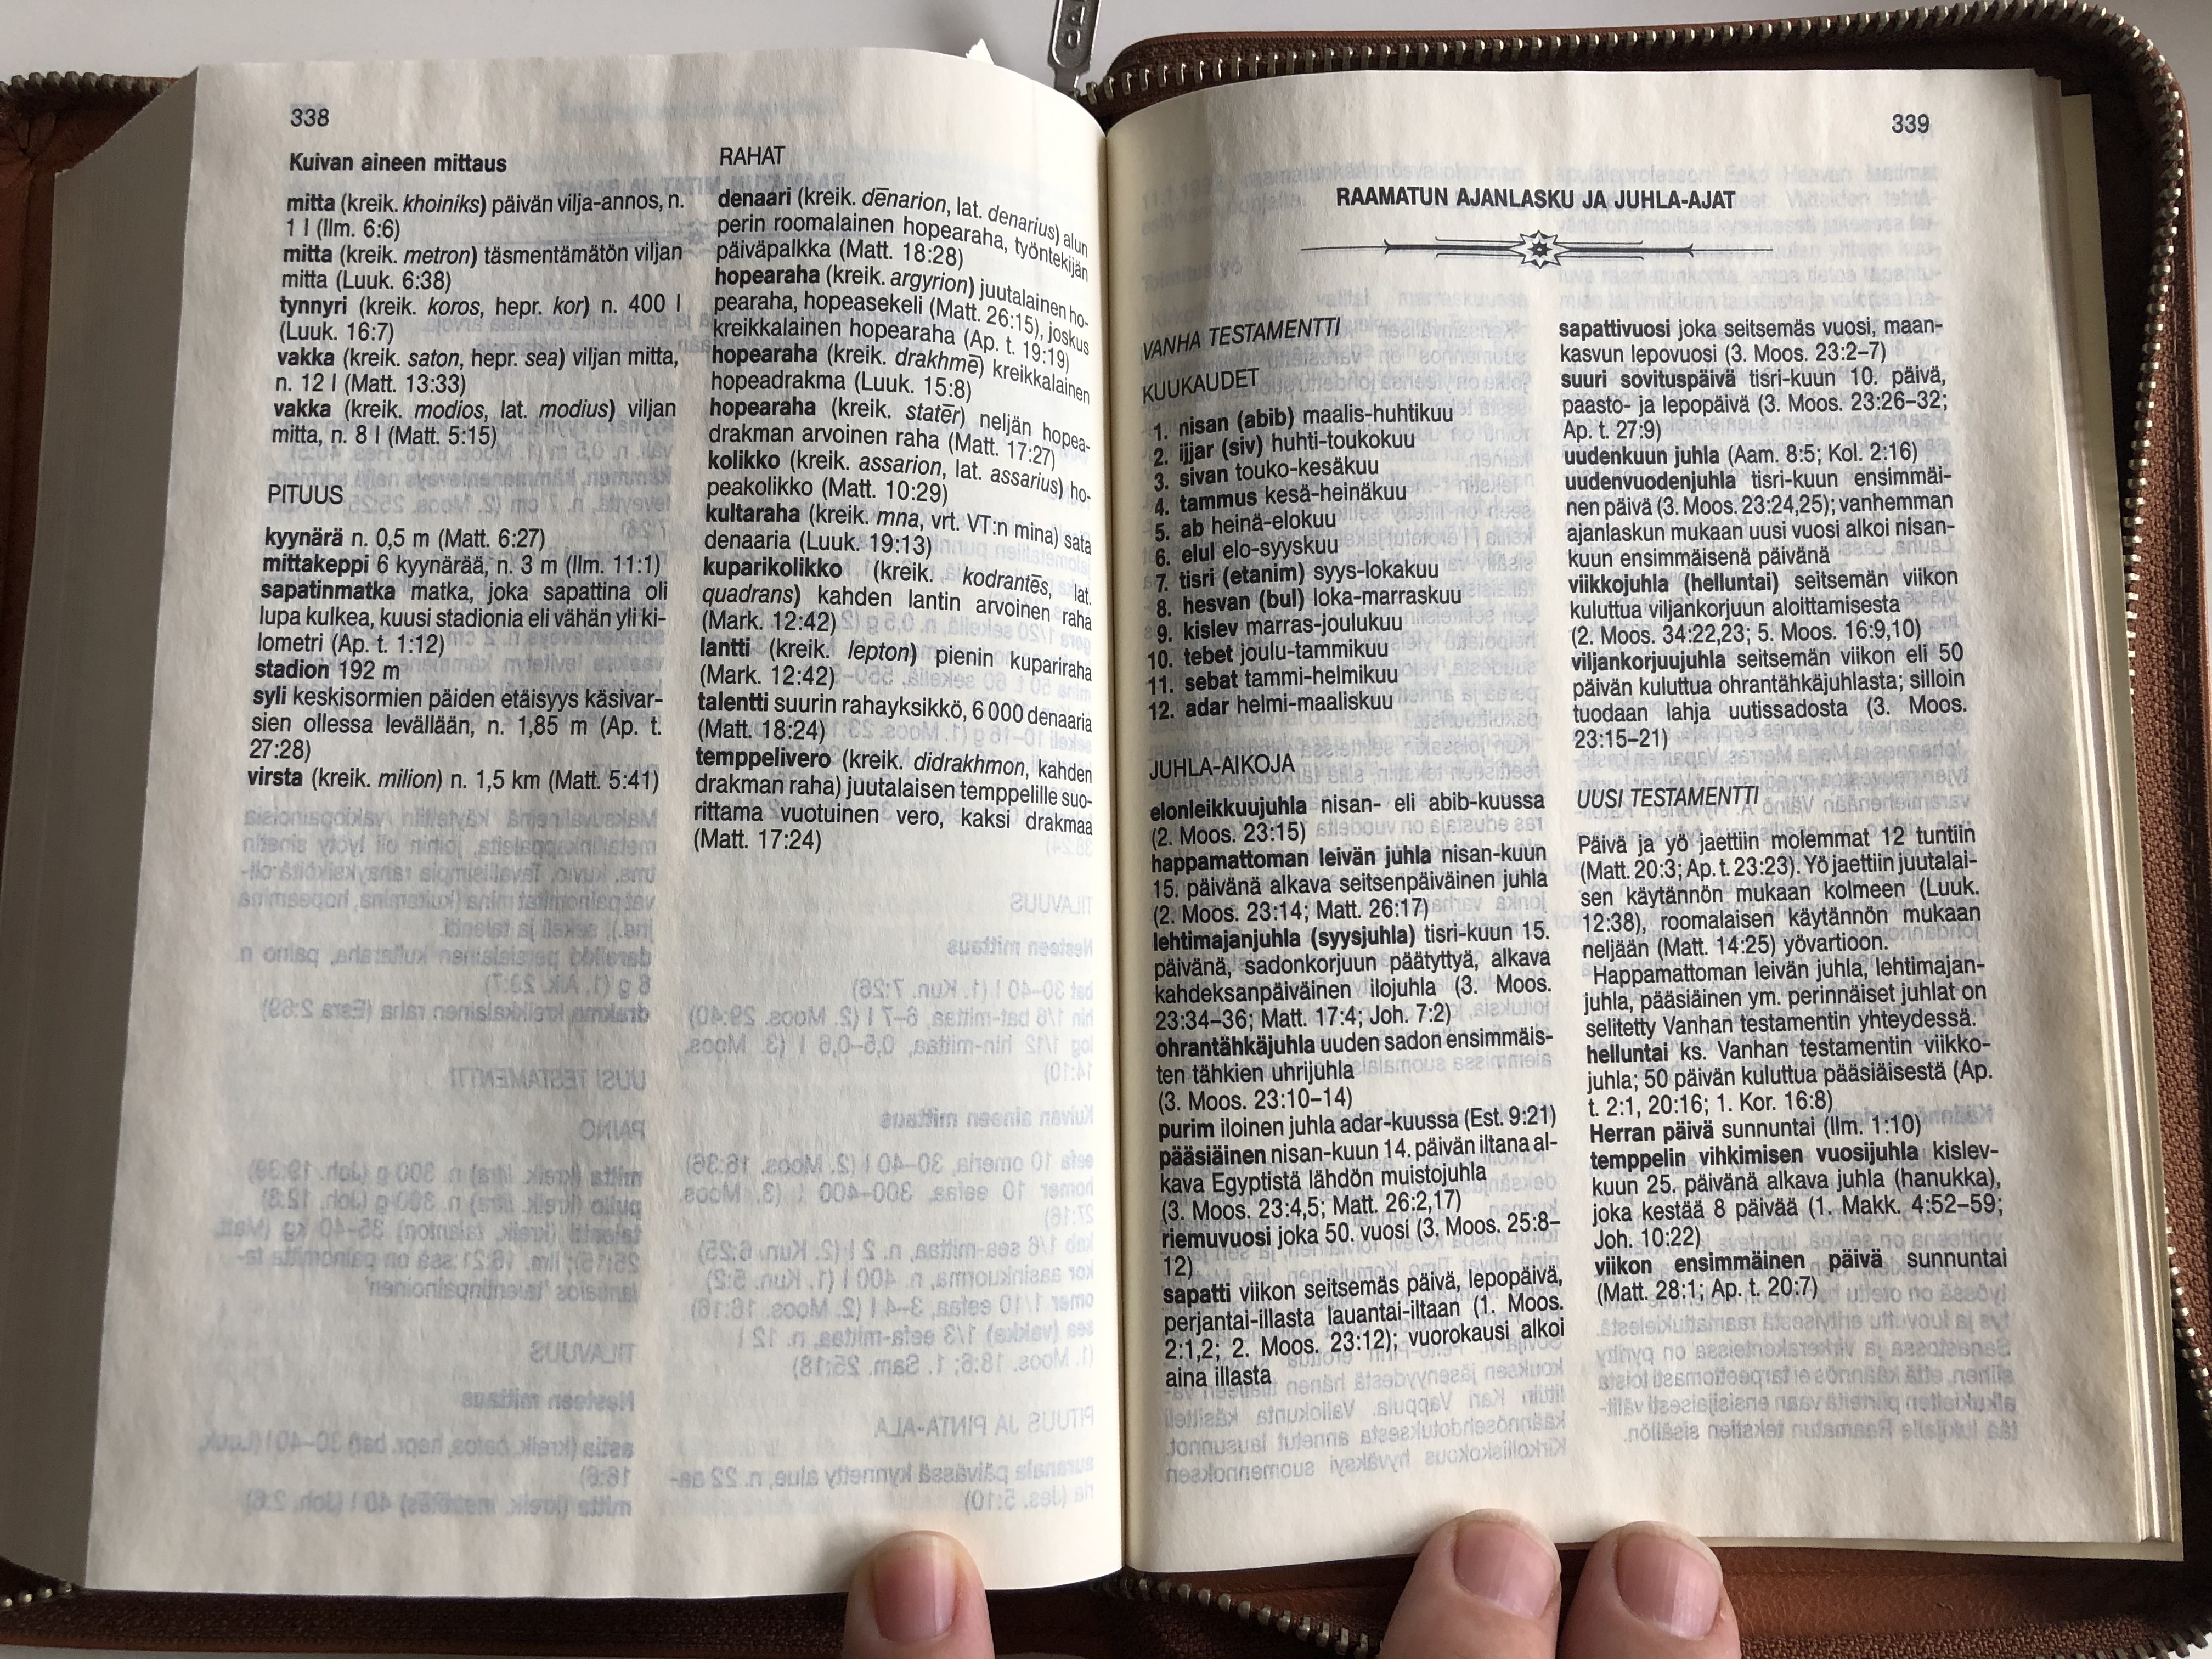 338
Kuivan aineen mittaus
mitta (kreik. khoiniks) päivän vilja-annos, n.
1 l (Ilm. 6:6)
mitta (kreik. metron) täsmentämätön viljan
mitta (Luuk. 6:38)
tynnyri (kreik. koros, hepr. kor) n. 400 l
(Luuk. 16:7)
vakka (kreik. saton, hepr. sea) viljan mitta,
n. 12 l (Matt. 13:33)
vakka (kreik. modios, lat. modius) viljan
mitta, n. 8 l (Matt. 5:15)
PITUUS
kyynärä n. 0,5 m (Matt. 6:27)
mittakeppi 6 kyynärää, n. 3 m (Ilm. 11:1)
sapatinmatka matka, joka sapattina oli
lupa kulkea, kuusi stadionia eli vähän yli ki-
lometri (Ap. t. 1:12)
stadion 192 m
syli keskisormien päiden etäisyys käsivar-
sien ollessa levällään, n. 1,85 m (Ap. t.
27:28)
virsta (kreik. milion) n. 1,5 km (Matt. 5:41)
RAHAT
denaari (kreik. dēnarion, lat. denarius) alun
perin roomalainen hopearaha, työntekijän
päiväpalkka (Matt. 18:28)
hopearaha (kreik. argyrion) juutalainen ho-
pearaha, hopeasekeli (Matt. 26:15), joskus
kreikkalainen hopearaha (Ap. t. 19:19)
hopearaha (kreik. drakhmē) kreikkalainen
hopeadrakma (Luuk. 15:8)
hopearaha (kreik. statēr) neljän hopea-
drakman arvoinen raha (Matt. 17:27)
kolikko (kreik. assarion, lat. assarius) ho-
peakolikko (Matt. 10:29)
kultaraha (kreik. mna, vrt. VT:n mina) sata
denaaria (Luuk. 19:13)
kuparikolikko (kreik. kodrantēs, lat.
quadrans) kahden lantin arvoinen raha
(Mark. 12:42)
lantti (kreik. lepton) pienin kupariraha
(Mark. 12:42)
talentti suurin rahayksikkö, 6 000 denaaria
(Matt. 18:24)
temppelivero (kreik. didrakhmon, kahden
drakman raha) juutalaisen temppelille suo-
rittama vuotuinen vero, kaksi drakmaa
(Matt. 17:24)
339
RAAMATUN AJANLASKU JA JUHLA-AJAT
VANHA TESTAMENTTI
KUUKAUDET
1. nisan (abib) maalis-huhtikuu
2. ijjar (siv) huhti-toukokuu
3. sivan touko-kesäkuu
4. tammus kesä-heinäkuu
5. ab heinä-elokuu
6. elul elo-syyskuu
7. tisri (etanim) syys-lokakuu
8. hesvan (bul) loka-marraskuu
9. kislev marras-joulukuu
10. tebet joulu-tammikuu
11. sebat tammi-helmikuu
12. adar helmi-maaliskuu
JUHLA-AIKOJA
elonleikkuujuhla nisan- eli abib-kuussa
(2. Moos. 23:15)
happamattoman leivän juhla nisan-kuun
15. päivänä alkava seitsenpäiväinen juhla
(2. Moos. 23:14; Matt. 26:17)
lehtimajanjuhla (syysjuhla) tisri-kuun 15.
päivänä, sadonkorjuun päätyttyä, alkava
kahdeksanpäiväinen ilojuhla (3. Moos.
23:34–36; Matt. 17:4; Joh. 7:2)
ohrantähkäjuhla uuden sadon ensimmäis-
ten tähkien uhrijuhla
(3. Moos. 23:10–14)
purim iloinen juhla adar-kuussa (Est. 9:21)
pääsiäinen nisan-kuun 14. päivän iltana al-
kava Egyptistä lähdön muistojuhla
(3. Moos. 23:4,5; Matt. 26:2,17)
riemuvuosi joka 50. vuosi (3. Moos. 25:8–
12)
sapatti viikon seitsemäs päivä, lepopäivä,
perjantai-illasta lauantai-iltaan (1. Moos.
2:1,2; 2. Moos. 23:12); vuorokausi alkoi
aina illasta
sapattivuosi joka seitsemäs vuosi, maan-
kasvun lepovuosi (3. Moos. 23:2–7)
suuri sovituspäivä tisri-kuun 10. päivä,
paasto- ja lepopäivä (3. Moos. 23:26–32;
Ap. t. 27:9)
uudenkuun juhla (Aam. 8:5; Kol. 2:16)
uudenvuodenjuhla tisri-kuun ensimmäi-
nen päivä (3. Moos. 23:24,25); vanhemman
ajanlaskun mukaan uusi vuosi alkoi nisan-
kuun ensimmäisenä päivänä
viikkojuhla (helluntai) seitsemän viikon
kuluttua viljankorjuun aloittamisesta
(2. Moos. 34:22,23; 5. Moos. 16:9,10)
viljankorjuujuhla seitsemän viikon eli 50
päivän kuluttua ohrantähkäjuhlasta; silloin
tuodaan lahja uutissadosta (3. Moos.
23:15–21)
UUSI TESTAMENTTI
Päivä ja yö jaettiin molemmat 12 tuntiin
(Matt. 20:3; Ap. t. 23:23). Yö jaettiin juutalai-
sen käytännön mukaan kolmeen (Luuk.
12:38), roomalaisen käytännön mukaan
neljään (Matt. 14:25) yövartioon.
Happamattoman leivän juhla, lehtimajan-
juhla, pääsiäinen ym. perinnäiset juhlat on
selitetty Vanhan testamentin yhteydessä.
helluntai ks. Vanhan testamentin viikko-
juhla; 50 päivän kuluttua pääsiäisestä (Ap.
t. 2:1, 20:16; 1. Kor. 16:8)
Herran päivä sunnuntai (Ilm. 1:10)
temppelin vihkimisen vuosijuhla kislev-
kuun 25. päivänä alkava juhla (hanukka),
joka kestää 8 päivää (1. Makk. 4:52–59;
Joh. 10:22)
viikon ensimmäinen päivä sunnuntai
(Matt. 28:1; Ap. t. 20:7)